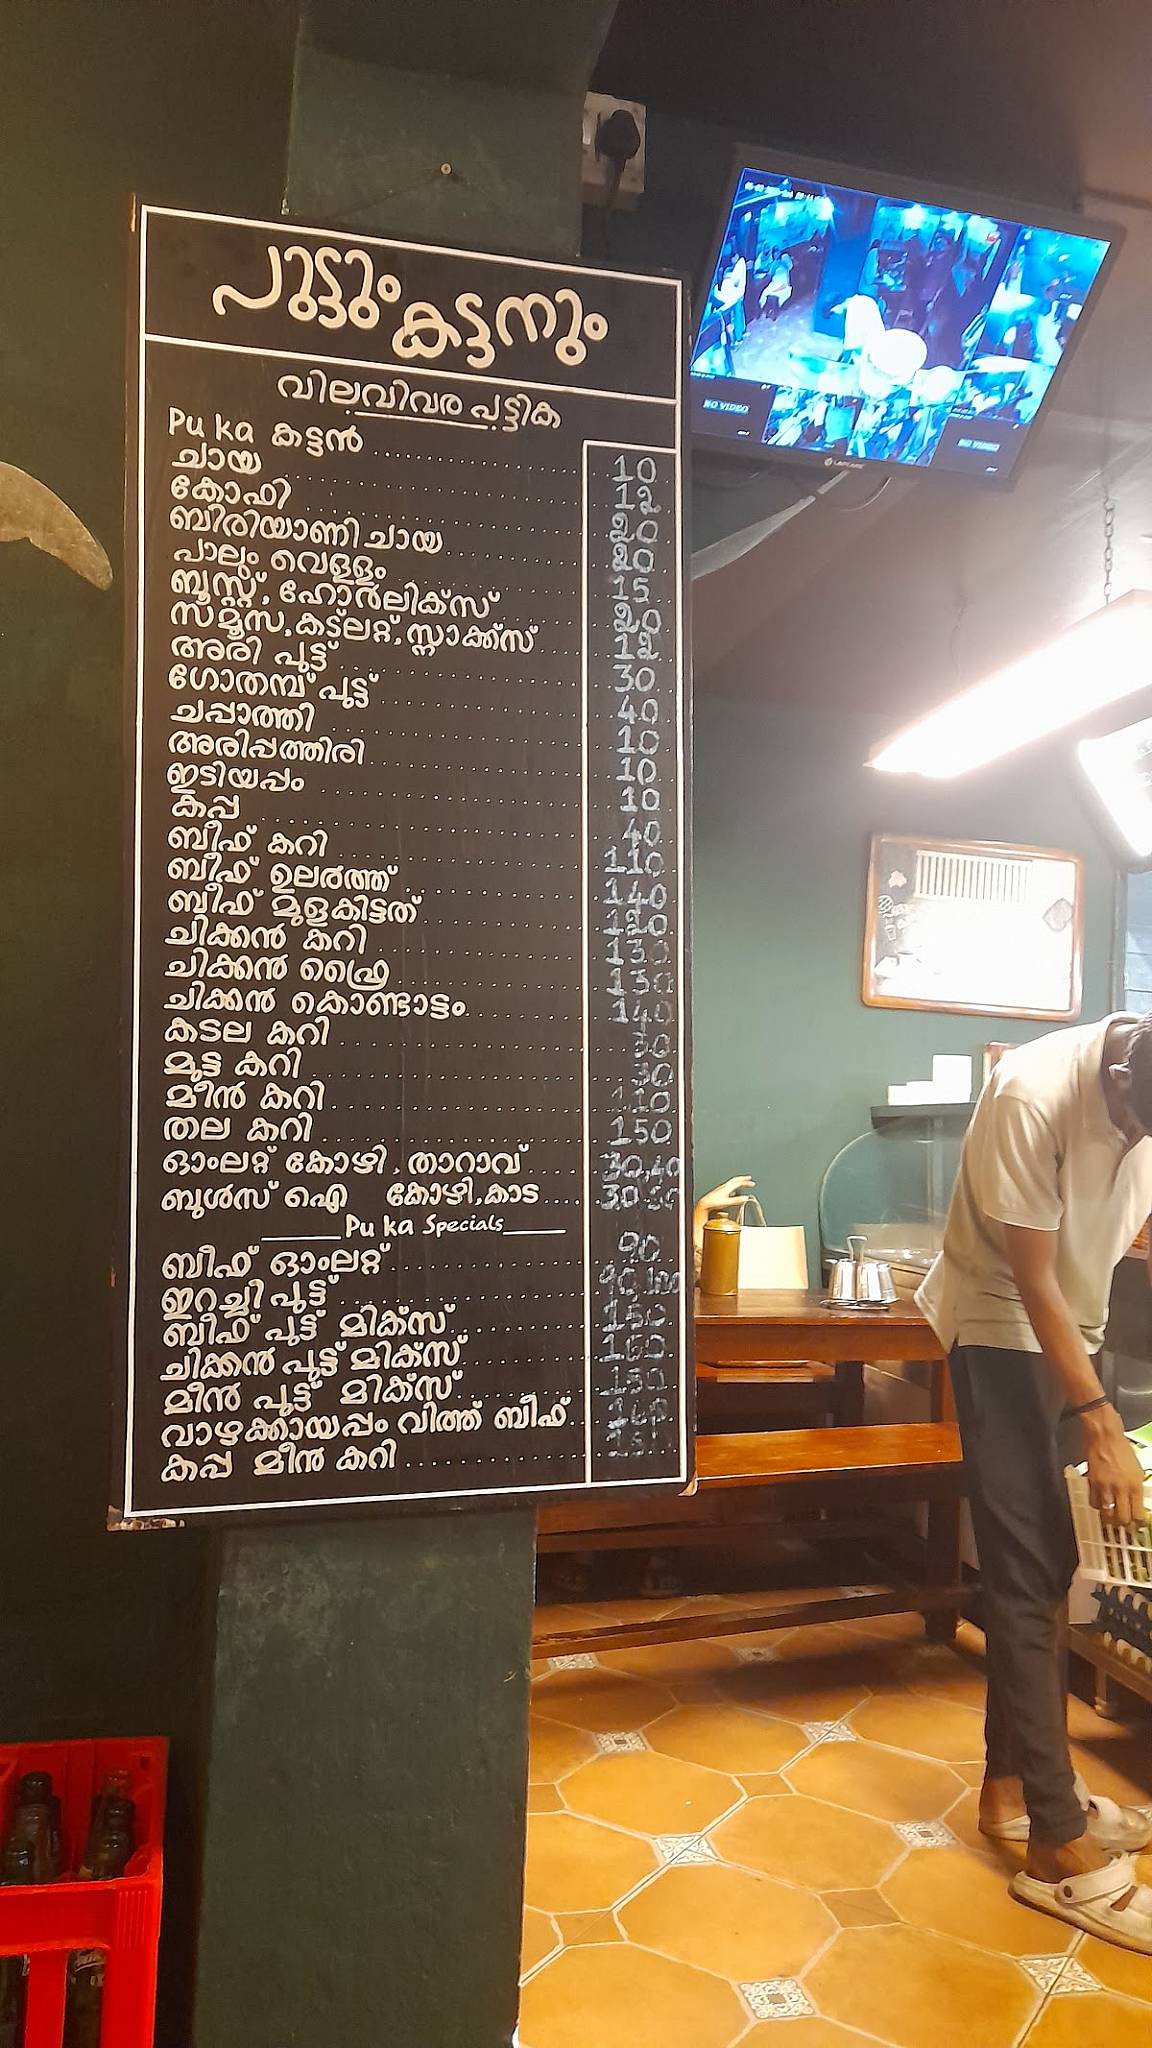 പുട്ടും കട്ടനും
വിലവിവര പട്ടിക
Pu ka കട്ടൻ 10
ചായ 12
കോഫി 20
ബിരിയാണി ചായ 20
പാലും വെള്ളം 15
ബൂസ്റ്റ്, ഹോർലിക്സ് 20
സമൂസ, കട്ലറ്റ്, സ്നാക്ക്സ് 12
അരി പുട്ട് 30
ഗോതമ്പ് പുട്ട് 40
ചപ്പാത്തി 10
അരിപ്പത്തിരി 10
ഇടിയപ്പം 10
കപ്പ 40
ബീഫ് കറി 110
ബീഫ് ഉലർത്ത് 140
ബീഫ് മുളകിട്ടത് 120
ചിക്കൻ കറി 130
ചിക്കൻ ഫ്രൈ 130
ചിക്കൻ കൊണ്ടാട്ടം 140
കടല കറി 30
മുട്ട കറി 30
മീൻ കറി 110
തല കറി 150
ഓംലറ്റ് കോഴി, താറാവ് 30,40
ബുൾസ് ഐ കോഴി, കാട 30
Pu ka Specials
ബീഫ് ഓംലറ്റ് 90
ഇറച്ചി പുട്ട് 90,100
ബീഫ് പുട്ട് മിക്സ് 150
ചിക്കൻ പുട്ട് മിക്സ് 160
മീൻ പുട്ട് മിക്സ് 150
വാഴക്കായപ്പം വിത്ത് ബീഫ്
കപ്പ മീൻ കറി
NO VIDEO
NO VIDEO
LAPCARE